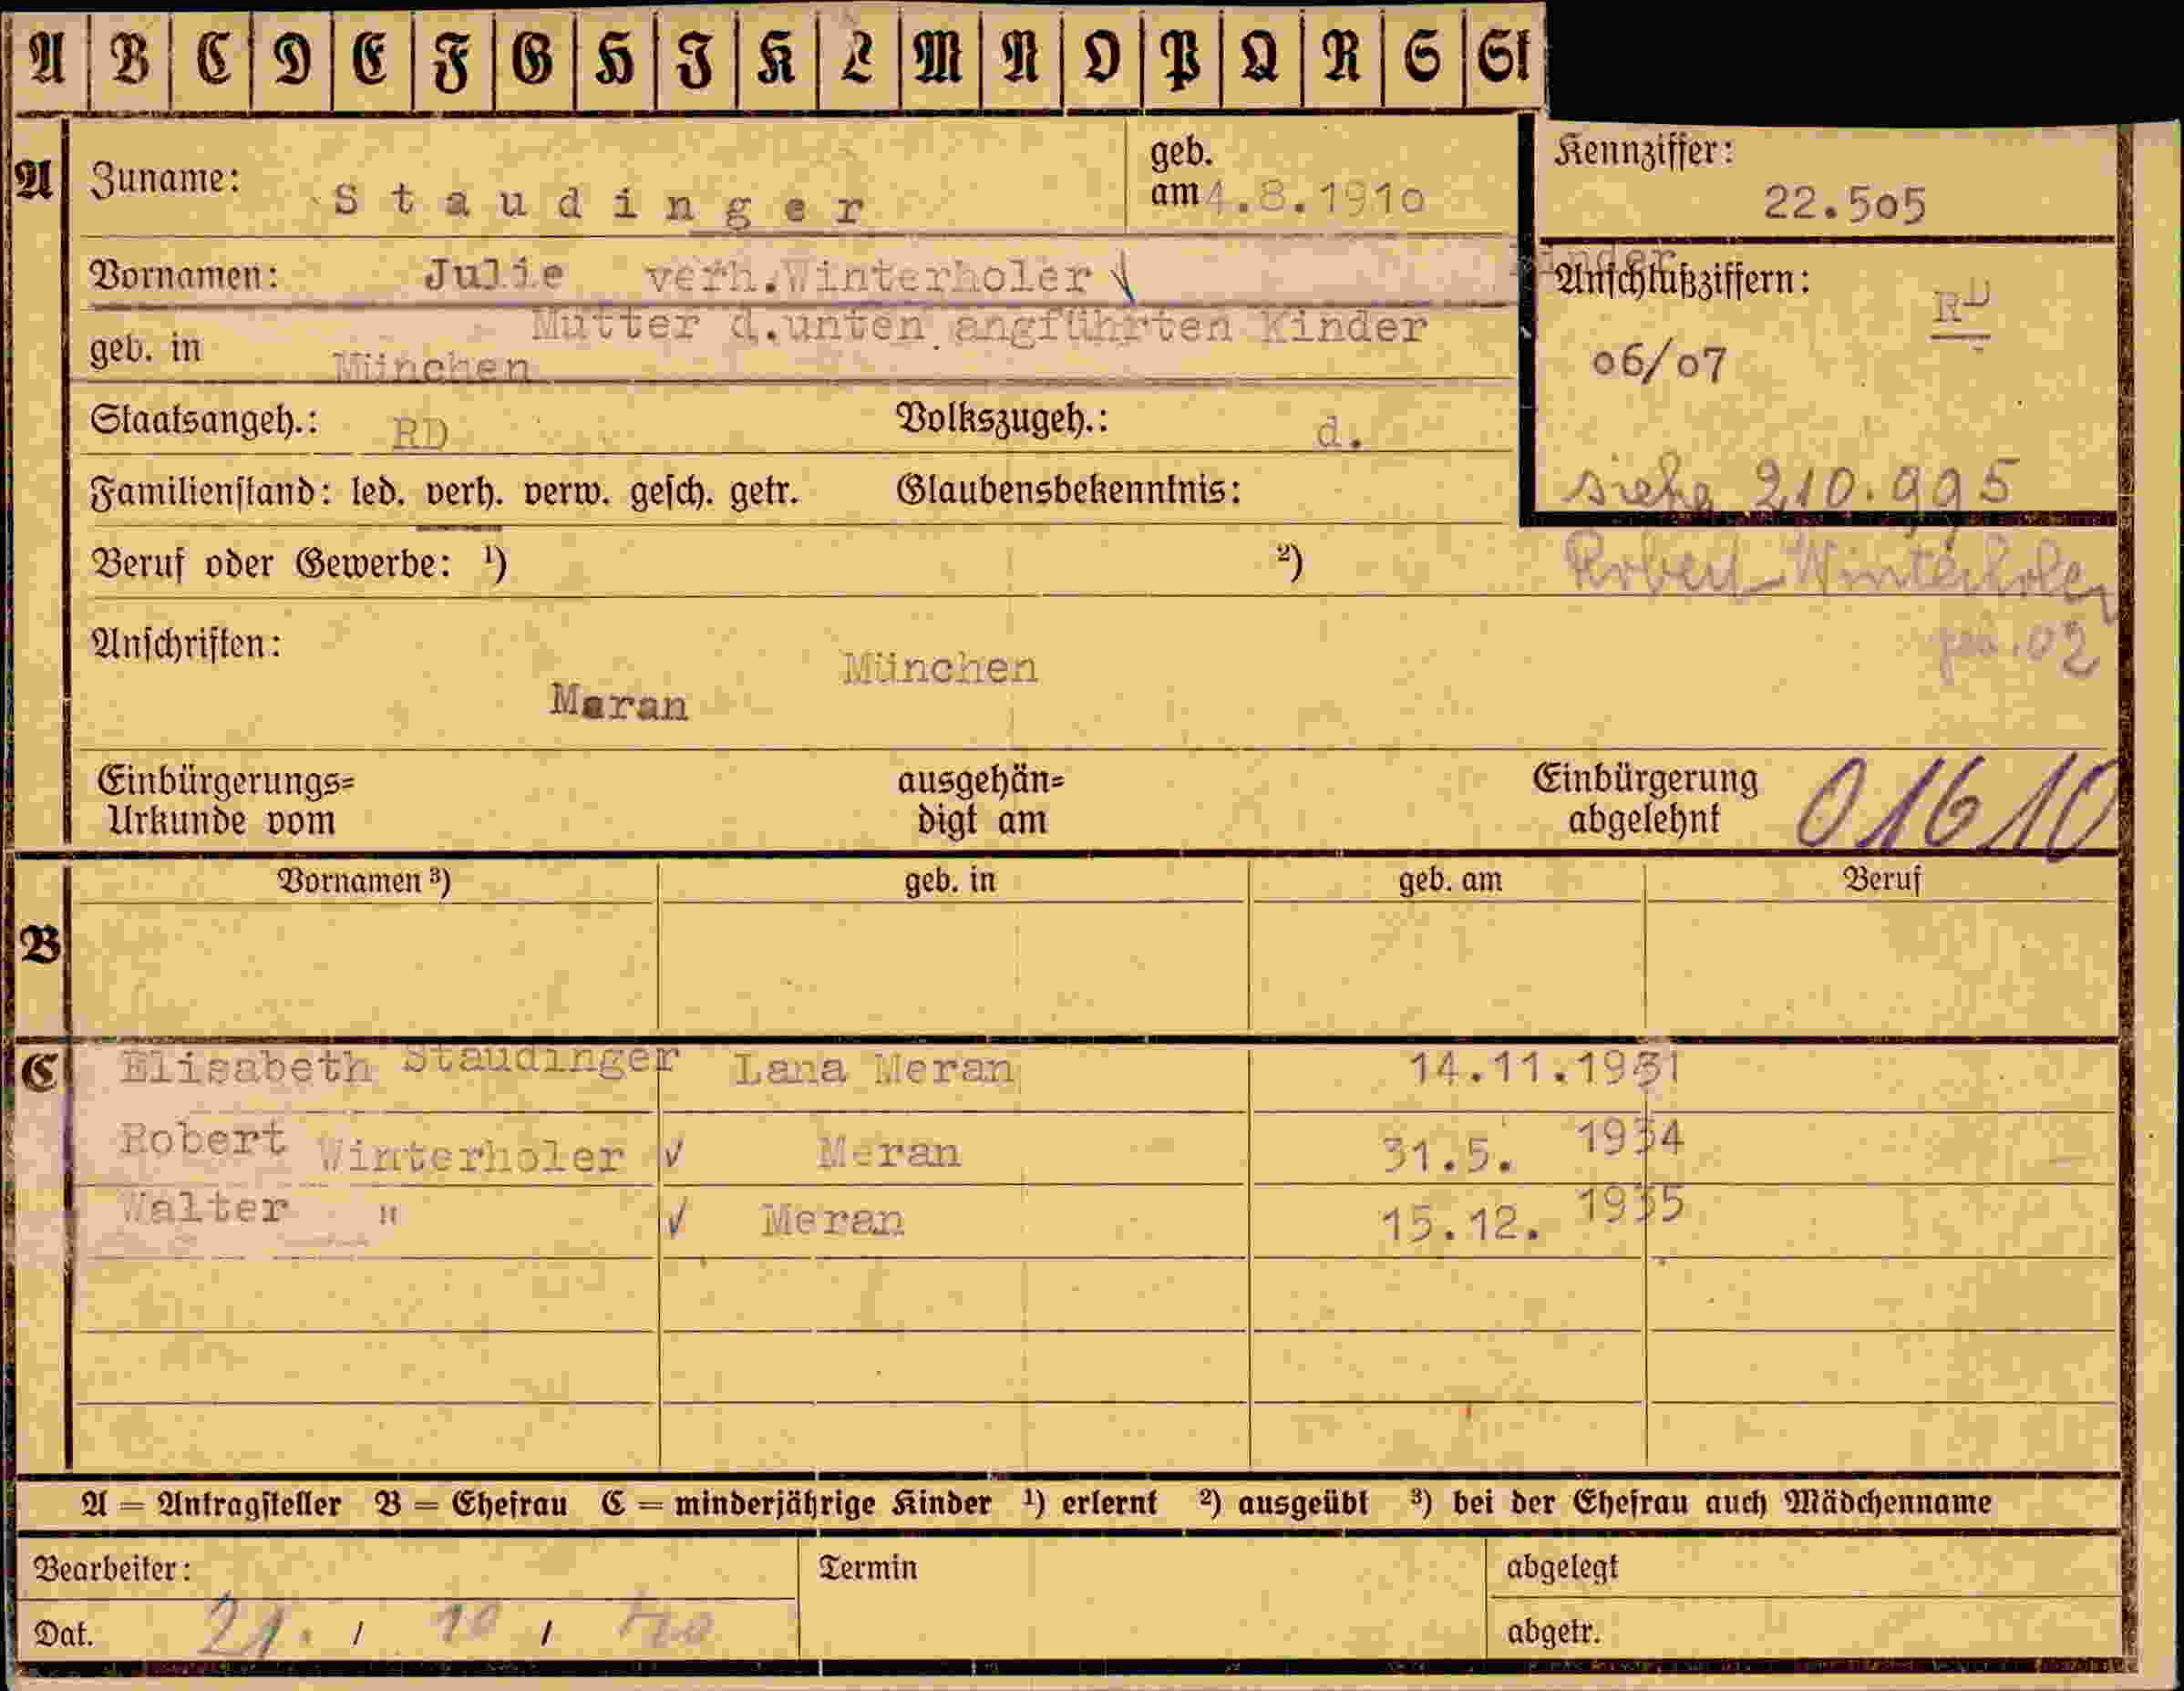 A B C D E F G H J K L M N O P Q R S St
A Zuname: Staudinger geb. am 4.8.1910
Kennziffer: 22.505
Vornamen: Julie verh.Winterholer
Anschlußziffern: RD
Mutter d.unten angführten Kinder
geb. in München
06/07
Staatsangeh.: RD Volkszugeh.: d.
siehe 210.995
Familienstand: led. verh. verw. gesch. getr. Glaubensbekenntnis:
Beruf oder Gewerbe: 1) 2)
Robert Winterholer
Anschriften: München
02
Maran
Einbürgerungs= Urkunde vom ausgehän= digt am Einbürgerung abgelehnt 01610
Vornamen 3) geb. in geb. am Beruf
B
C Elisabeth Staudinger Lana Meran 14.11.1931
Robert Winterholer √ Meran 31.5. 1934
Walter " √ Meran 15.12. 1935
A = Antragsteller B = Ehefrau C = minderjährige Kinder 1) erlernt 2) ausgeübt 3) bei der Ehefrau auch Mädchenname
Bearbeiter: Termin abgelegt
Dat. 21. / 10 / abgetr.